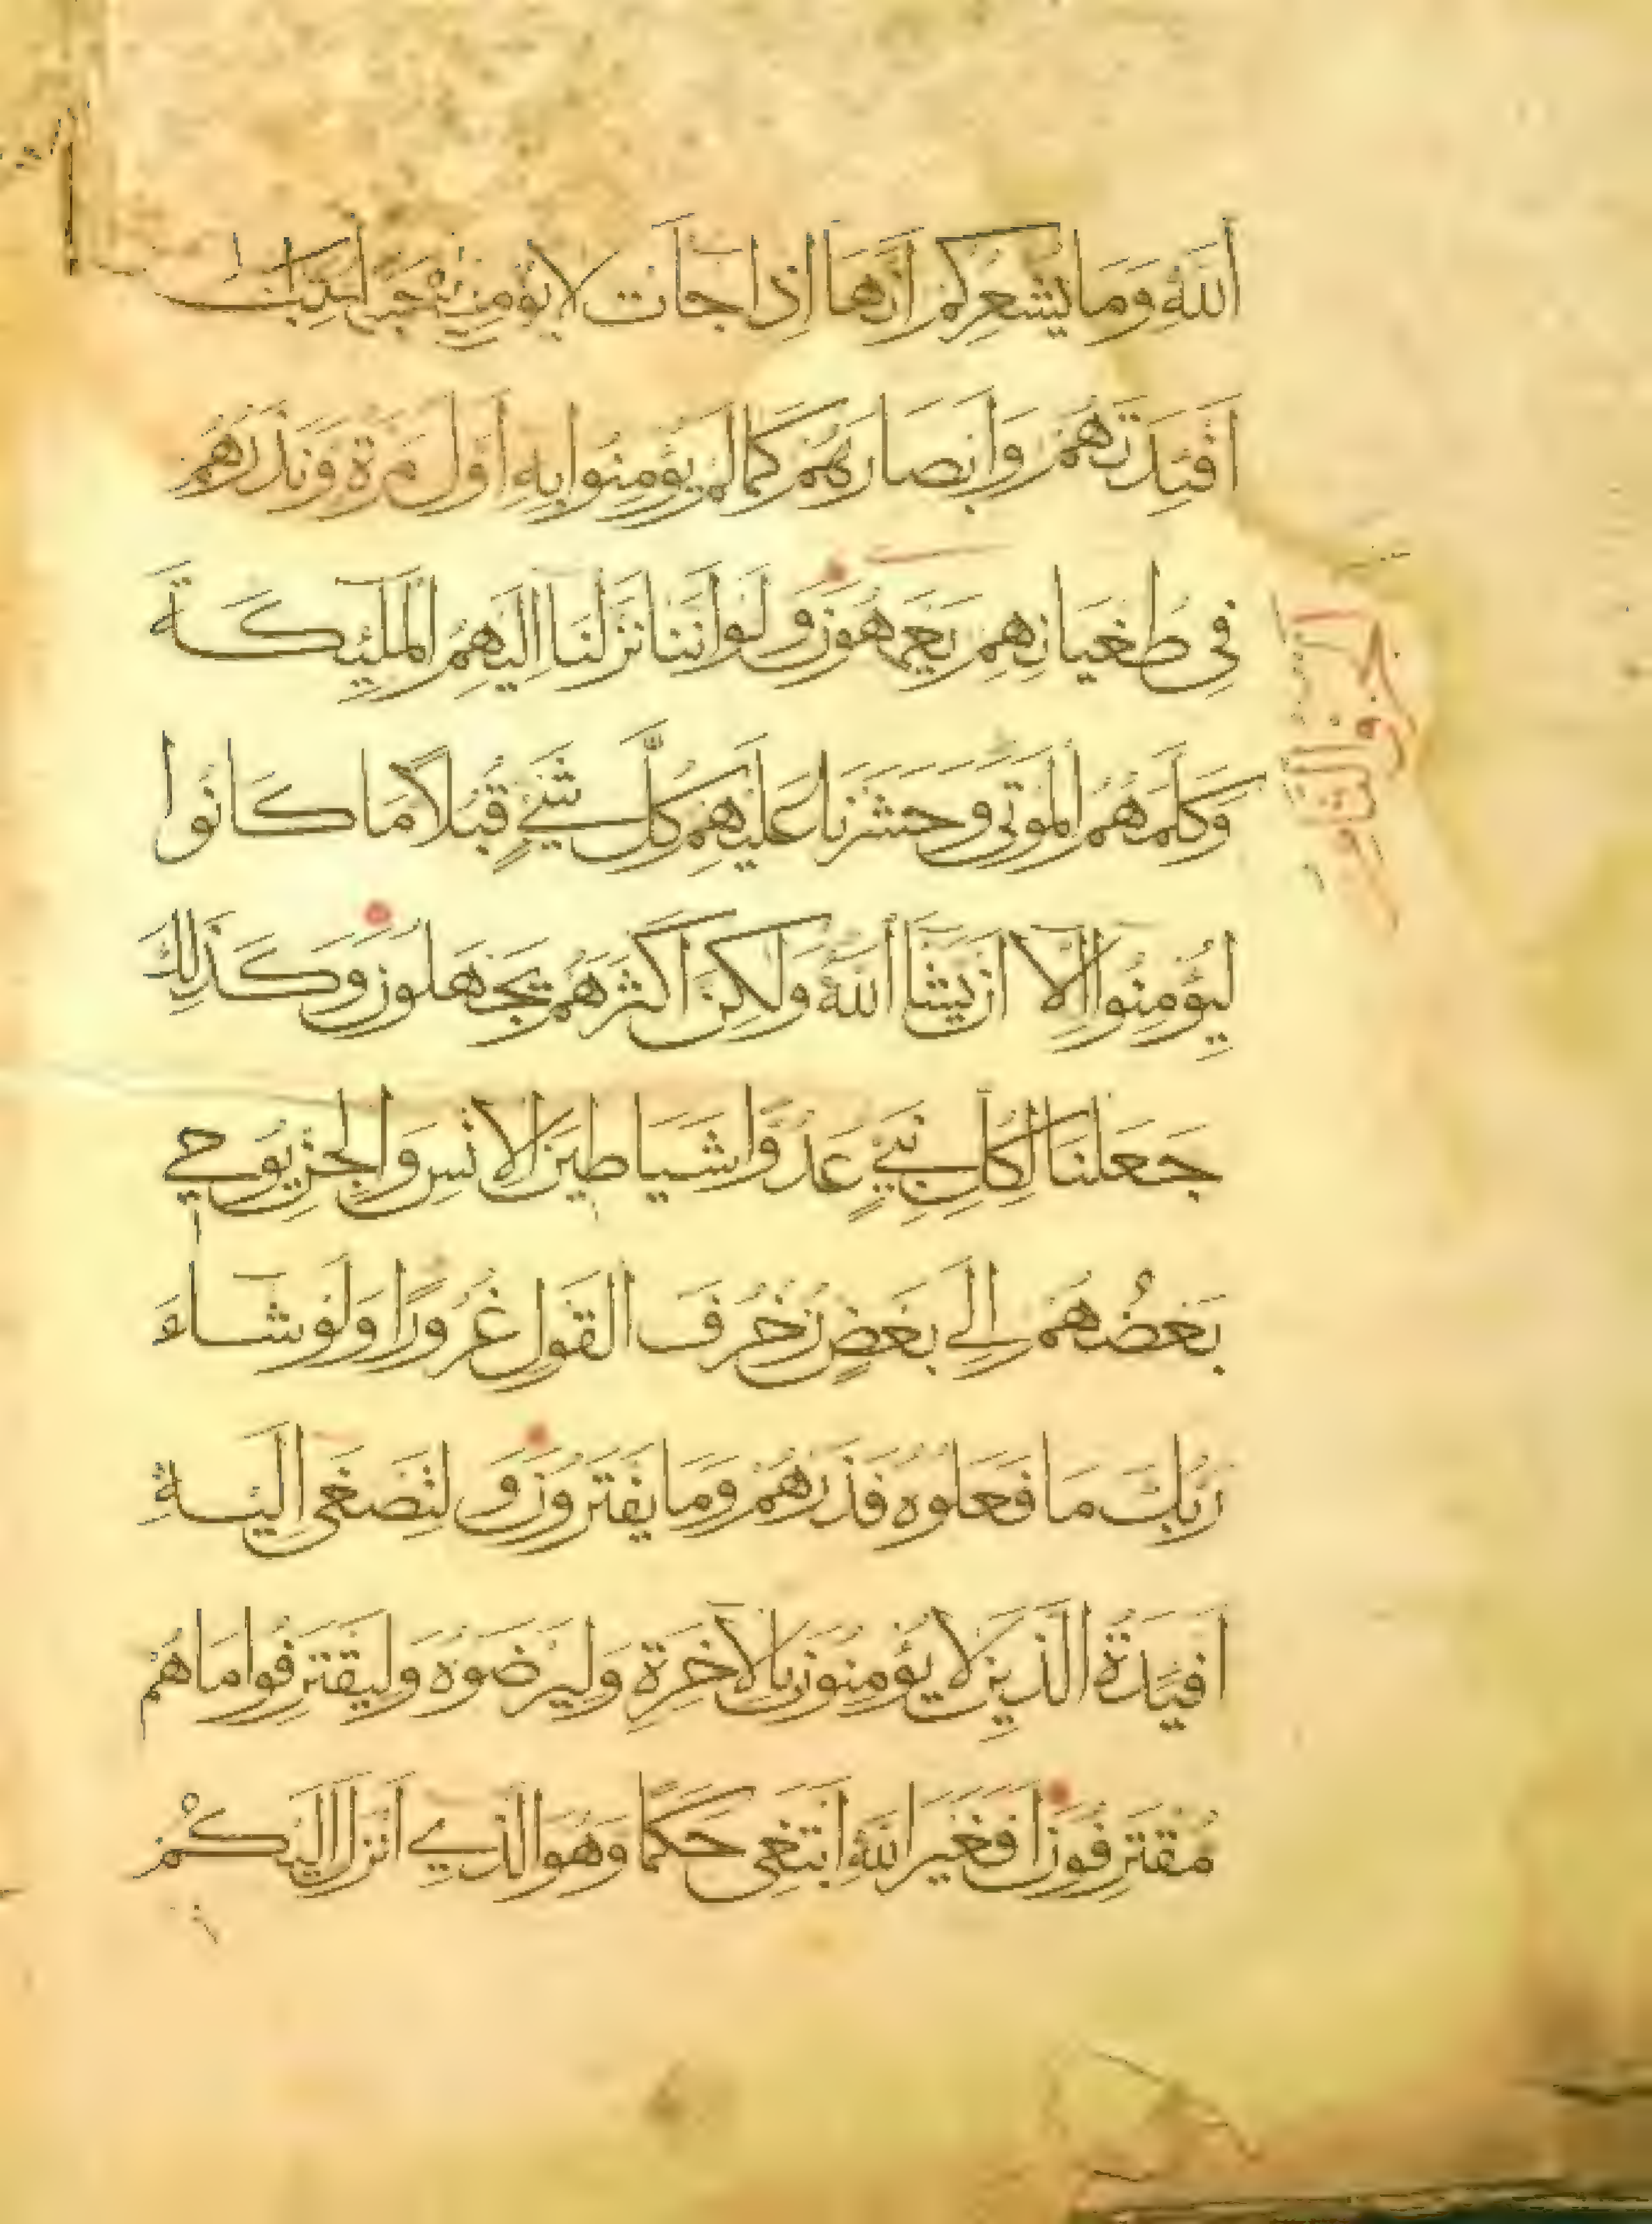 الله وما يشعركم أنها إذا جات لا يؤمنون
أفئدتهم وأبصارهم كما لم يؤمنوا به أول مرة ونذرهم
في طغيانهم يعمهون ولو أننا نزلنا إليهم الملئكة
وكلمهم الموتى وحشرنا عليهم كل شيء قبلا ما كانوا
ليؤمنوا إلا أن يشا الله ولكن أكثرهم يجهلون وكذلك
جعلنا لكل نبيء عدوا شياطين الإنس والجن يوحي
بعضهم إلى بعض زخرف القول غرورا ولو شاء
ربك ما فعلوه فذرهم وما يفترون ولتصغى إليه
أفئدة الذين لا يؤمنون بالآخرة وليرضوه وليقترفوا ما هم
مقترفون أفغير الله أبتغي حكما وهو الذي أنزل إليكم